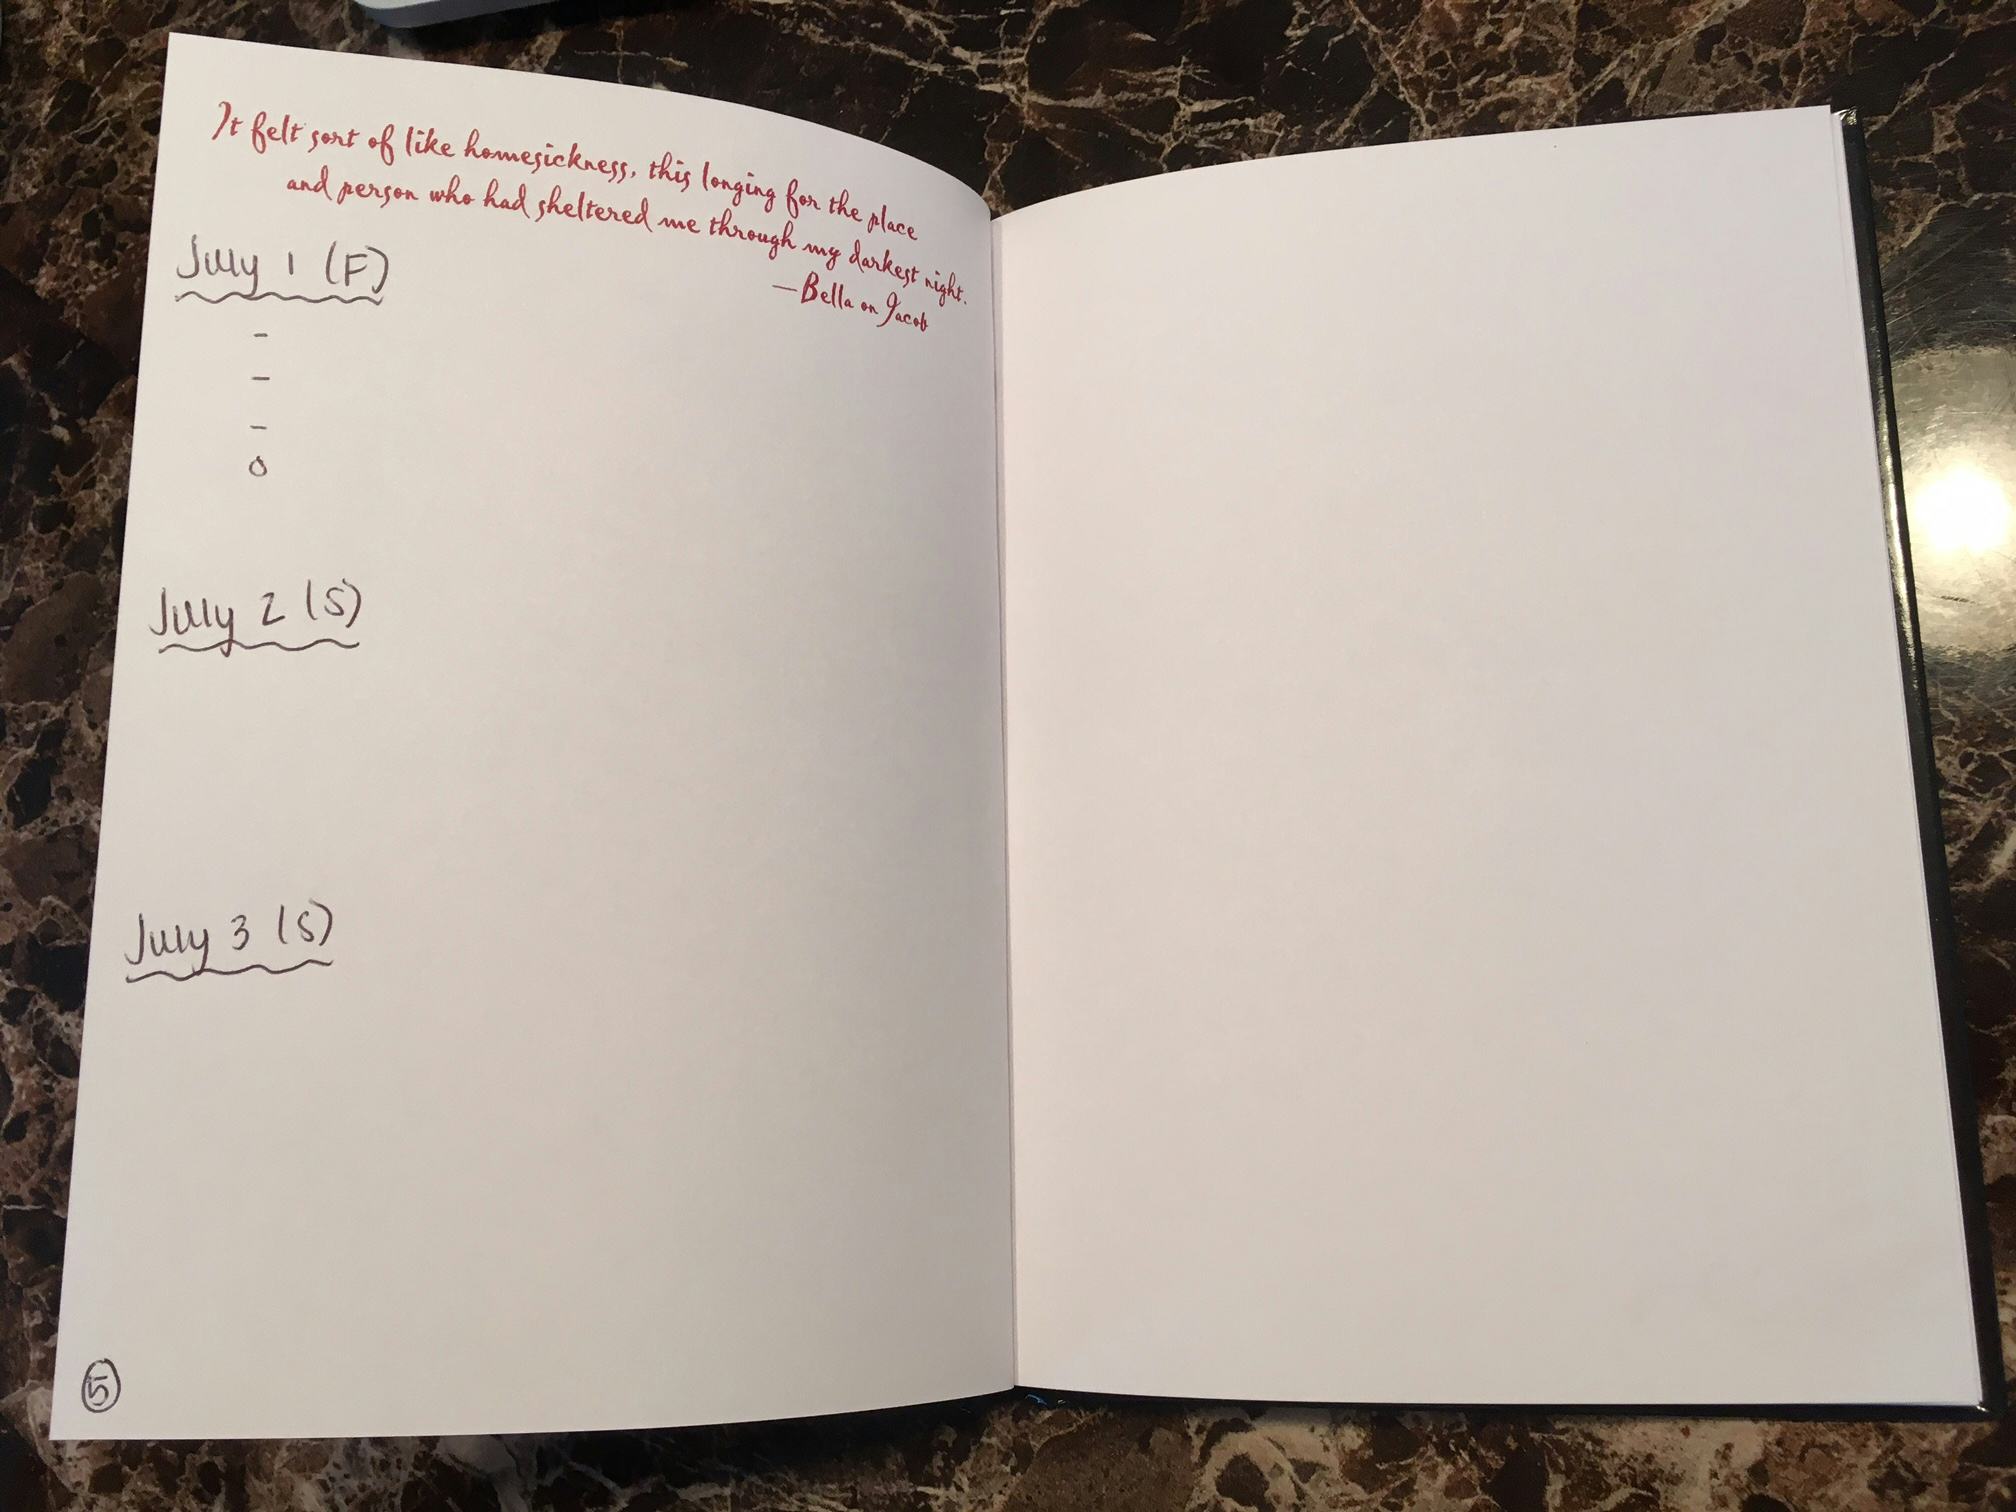 It felt sort of like homesickness, this longing for the place
and person who had sheltered me through my darkest night.
—Bella on Jacob
July 1 (F)
-
-
-
o
July 2 (S)
July 3 (S)
5